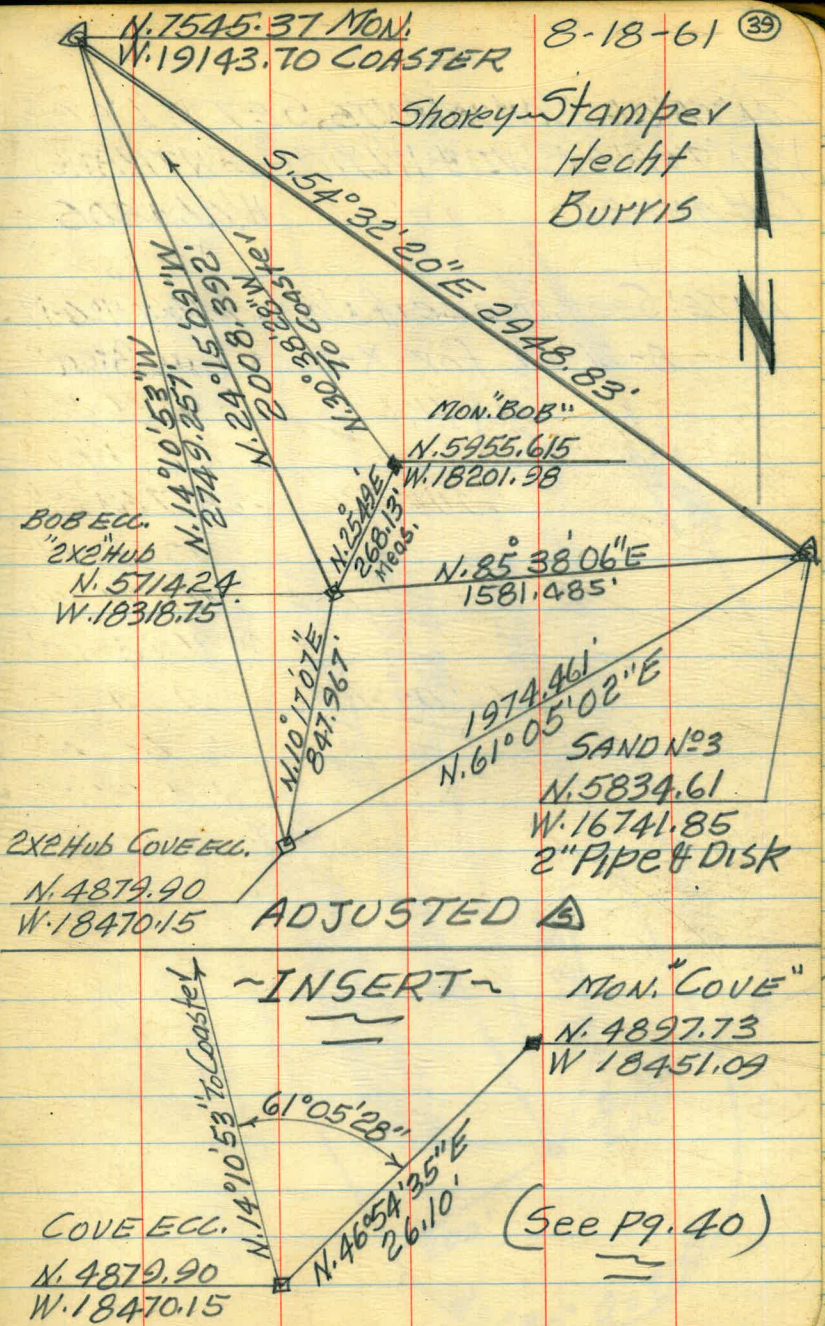 N. 7545.37 MON.
W. 19143.70 COASTER
8-18-61
39
Shorey - Stamper
Hecht
Burris
N
S. 54° 32' 20" E 2948.83'
N. 30° 38' 26" W
To Coaster
N. 24° 15' 09" W
2008.392'
N. 14° 10' 53" W
2749.257'
MON. "BOB"
N. 5955.615
W. 18201.98
N. 25° 49' E
268.13'
Meas.
BOB ECC.
"2X2" Hub
N. 5714.24
W. 18318.75
N. 85° 38' 06" E
1581.485'
N. 10° 17' 07" E
847.967'
1974.461'
N. 61° 05' 02" E
SAND Nº 3
N. 5834.61
W. 16741.85
2" Pipe & Disk
2X2 Hub COVE ECC.
N. 4879.90
W. 18470.15
ADJUSTED
~INSERT~
MON. "COVE"
N. 4897.73
W 18451.09
N. 14° 10' 53" To Coaster
61° 05' 28"
N. 46° 54' 35" E
26.10'
(See Pg. 40)
COVE ECC.
N. 4879.90
W. 18470.15